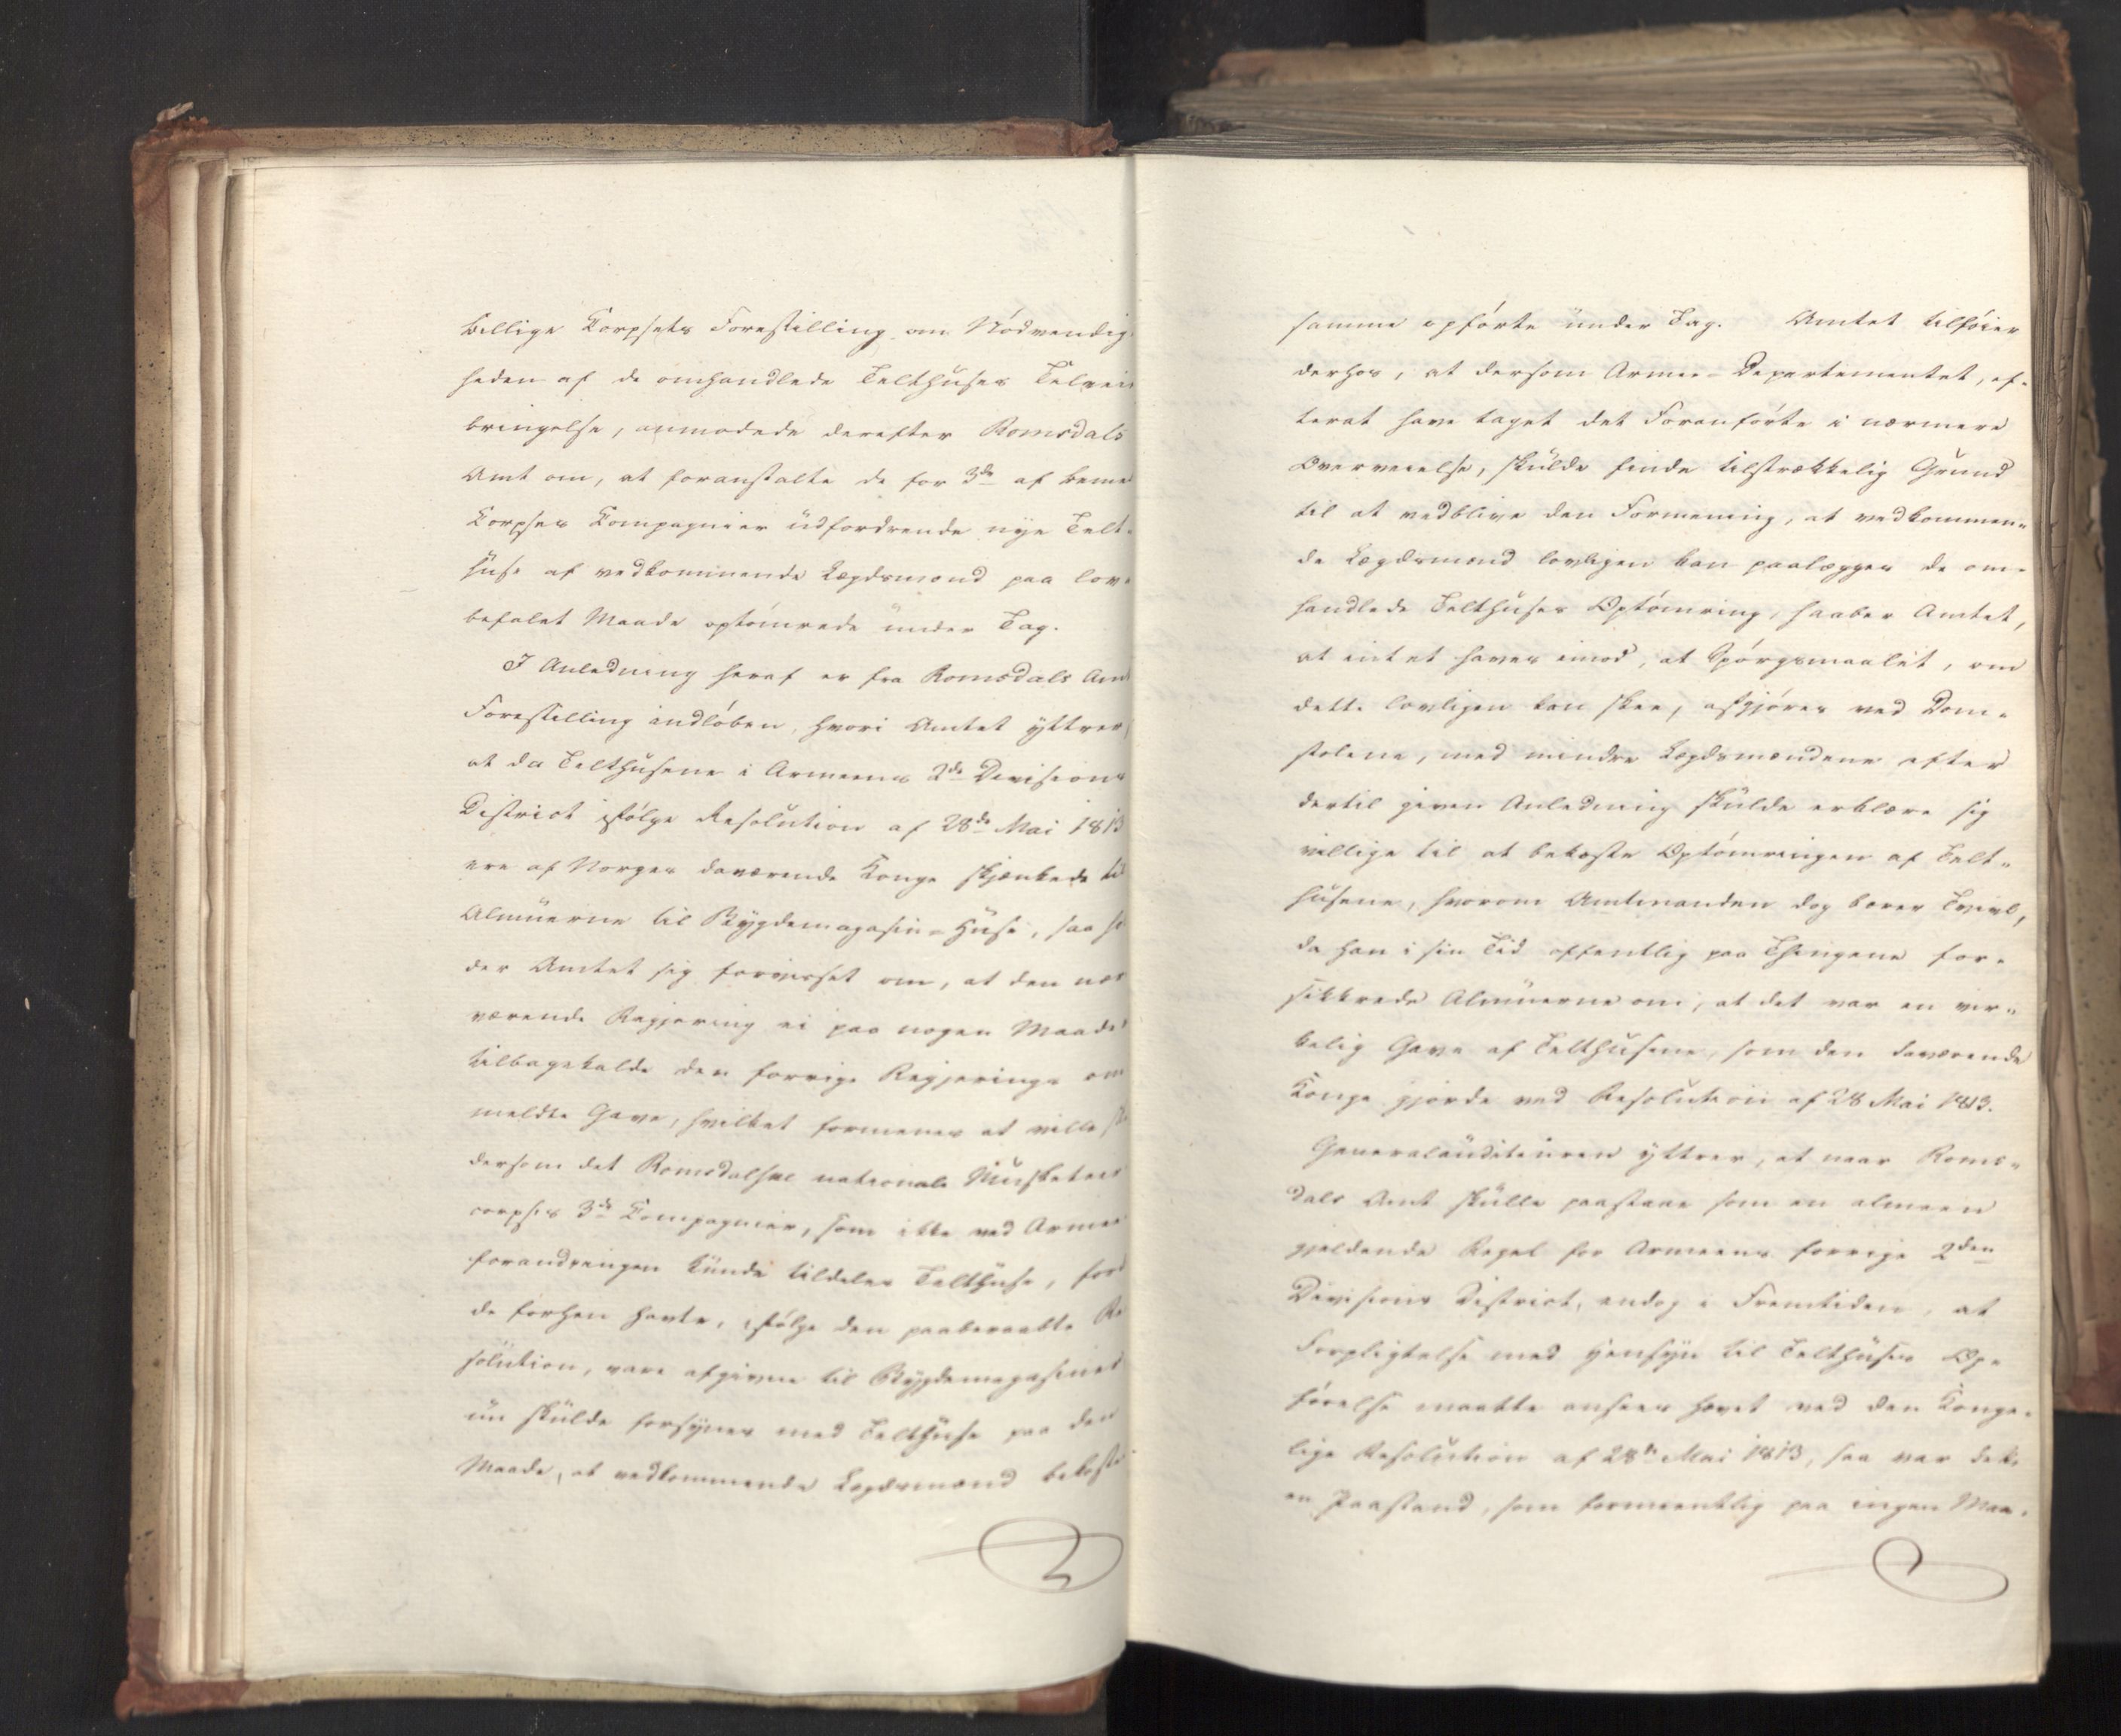 billige Corpsets Forestilling om Nödvendig-
heden af de omhandlede Telthuses Tilvei-
bringelse, anmodede derefter Romsdals
Amt om, at foranstalte de for 3de af bemel
Corpses Compagnier udfordrende nye Telt-
huse af vedkommende Lægdsmænd paa lov-
befalet Maade optömrede under Tag.
I Anledning heraf er fra Romsdals Amt
Forestilling indlöben, hvori Amtet yttrer,
at da Telthusene i Armeens 2de Divisions
District ifölge Resolution af 28de Mai 1813
ere af Norges daværende Konge skjænkede til
Almuerne til Bygdemagasin-Huse, saa hol
der Amtet sig forvisset om, at den nær
værende Regjering ei paa nogen Maade
tilbagekalde den forrige Regjerings om
meldte Gave, hvilket formenes at ville ske
dersom det Romsdalske nationale Musketeer
corpses 3de Compagnier, som ikke ved Armee
forandringen kunde tildeles Telthuse, ford
de forhen havte, ifölge den paaberaabte Re
solution, vare afgivne til Bygdemagasiner
nu skulde forsynes med Telthuse paa den
Maade, at vedkommende Lægdsmænd bekoste
samme opförte under Tag. Amtet tilföier
derhos, at dersom Armee-Departementet, ef-
terat have taget det Foranförte i nærmere
Overveielse, skulde finde tilstrækkelig Grund
til at vedblive den Formening, at vedkommen-
de Lægdsmænd lovligen kan paalægges de om-
handlede Telthuses Optömring, haaber Amtet,
at intet haves imod, at Spörgsmaalet, om
dette lovligen kan skee, afgjöres ved Dom-
stolene, med mindre Lægdsmændene efter
dertil given Anledning skulde erklære sig
villige til at bekoste Optömringen af Telt-
husene, hvorom Amtmanden dog bærer Tvivl,
da han i sin Tid offentlig paa Thingene for-
sikkrede Almuerne om, at det var en vir-
kelig Gave af Telthusene, som den daværende
Konge gjorde ved Resolution af 28 Mai 1813.
Generalauditeuren yttrer, at naar Roms-
dals Amt skulle paastaae som en almeen
gjeldende Regel for Armeens forrige 2den
Divisions District, endog i Fremtiden, at
Forpligtelse med Hensyn til Telthuses Op-
förelse maatte ansees hævet ved den Konge-
lige Resolution af 28de Mai 1813, saa var dette
en Paastand, som formeentlig paa ingen Maa-